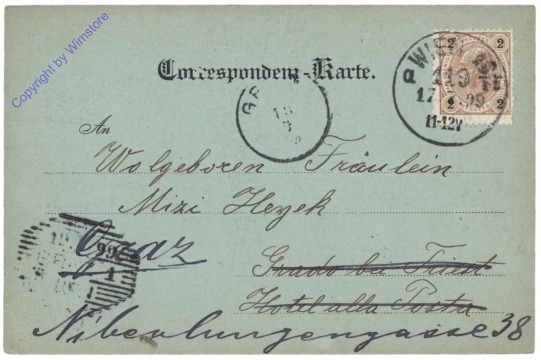 Copyright by Wimstore
Correspondenz-Karte.
2 2
2 2
WIE
17 99
11-12V
GR
18
An
Wolgeboren Fräulein
Mizi Heyek
Graz
Grado bei Triest
Hotel alla Posta
Nibelungengasse 38
99
1